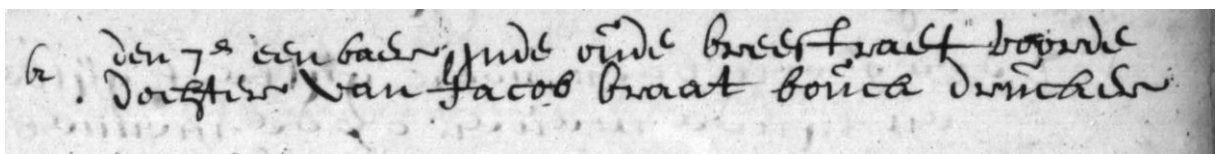 k den 7e een baer Inde oude breestraet voorde
dochter van Jacob braat bouck drucker